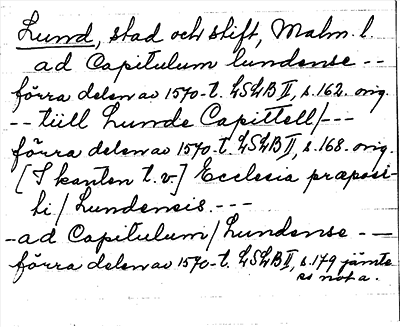 Lund, stad och stift, Malm. l.
ad Capitulum lundense --
förra delen av 1570-t. LSLB II, s. 162. orig.
-- tüll Lunde Capittell/---
förra delen av 1570-t. LSLB II, s. 168. orig.
[I kanten t.v.] Ecclesia præposi-
ti/ Lundensis. ---
- ad Capitulum/Lundense - -
förra delen av 1570-t. LSLB II, s. 179 jämte
not a.